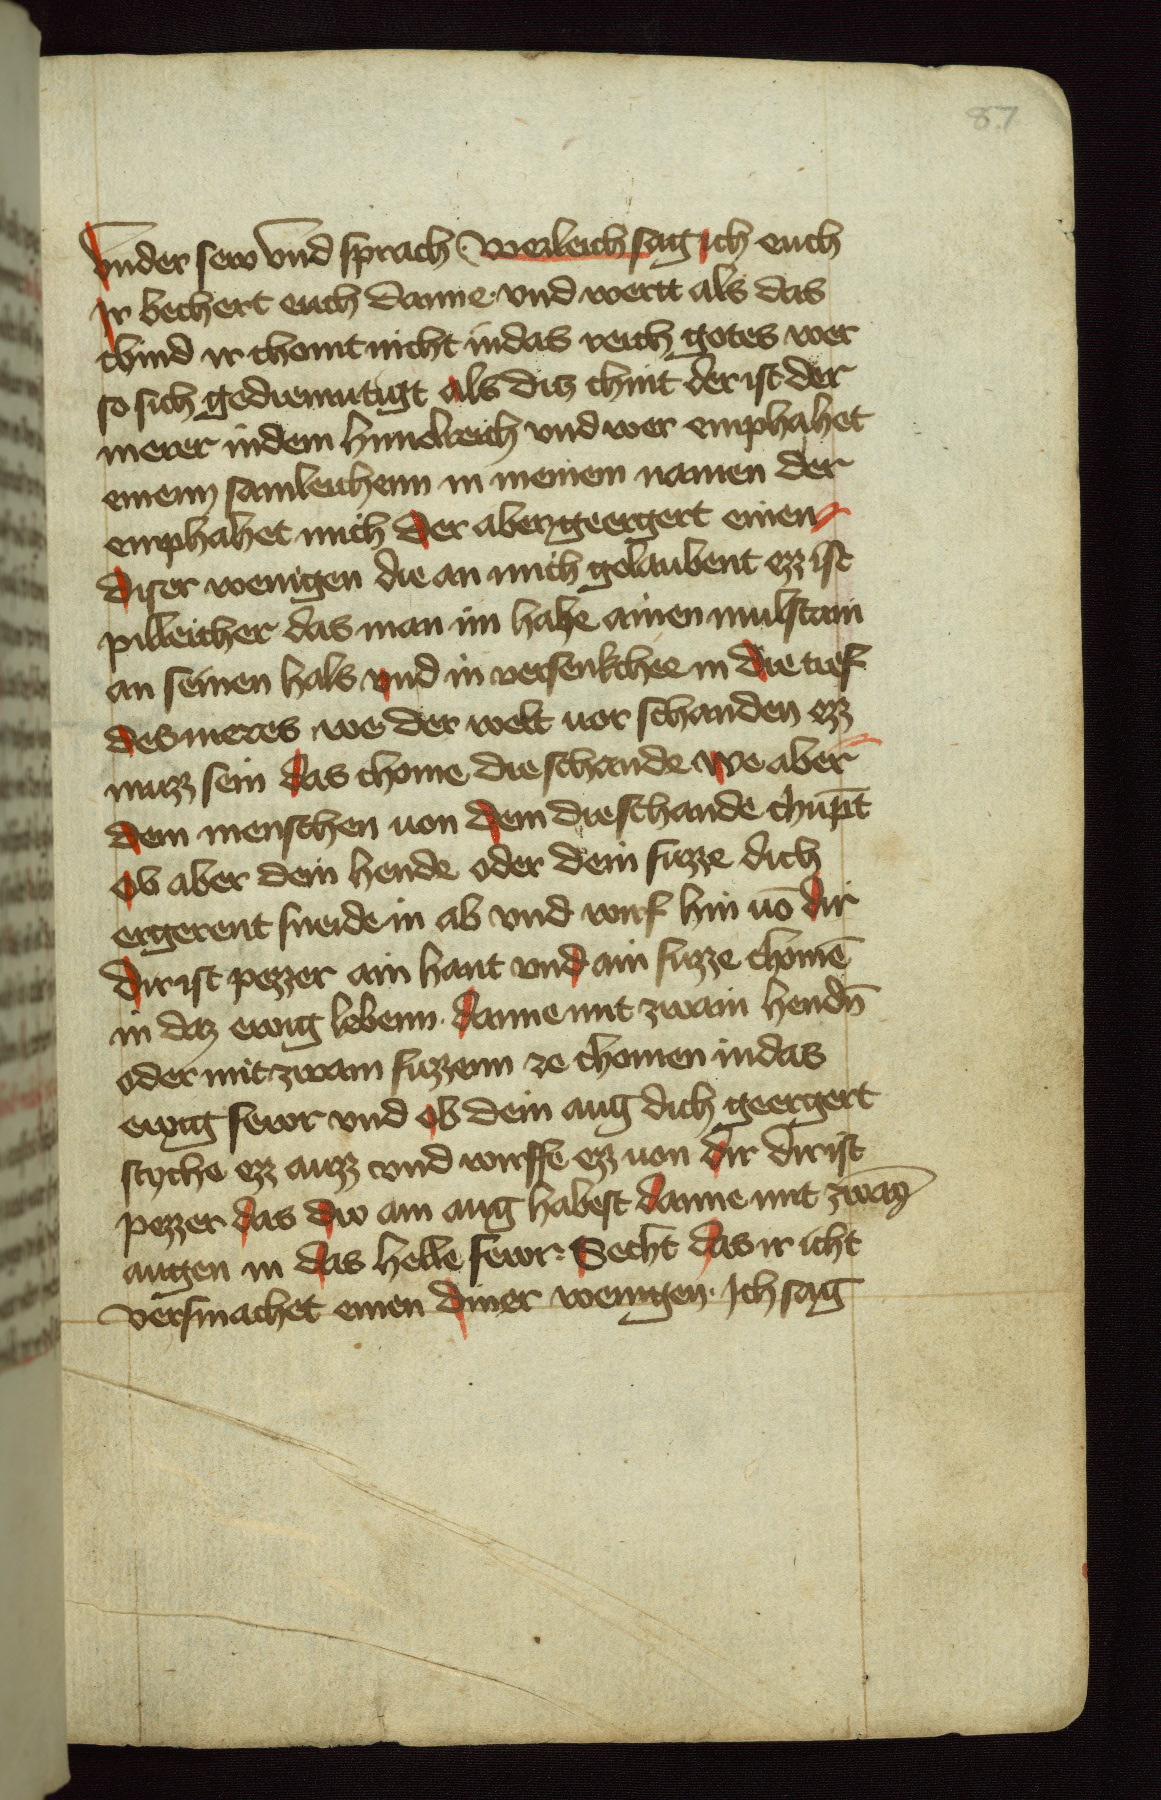 87
vnder sew vnd sprach werleich sag ich euch
Ir bechert euch danne vnd wertt als das
chind ir chomt nicht indas reich gotes wer
so sich gediemutigt als ditz chint der ist der
merer indem himelreich vnd wer emphahet
einenn samleichenn in meinem namen der
emphahet mich der aber geergert einen
diser wenigen die an mich gelaubent ezz ist
pilleicher das man im hahe ainen mulstain
an seinen hals vnd in versenkchee in die tief
des meres we der welt uor schanden ezz
muzz sein das chome die schande we aber
dem menschen uon dem die schande chupt̄
ob aber dein hende oder dein fuzze dich
ergerent sneide in ab vnd wirf hin uō dir
dir ist pezzer ain hant vnd ain fuzze chomē
in daz ewig lebenn danne mit zwain hendn̄
oder mit zwain fuzzenn ze chomen indas
ewig fewr vnd ob dein aug dich geergert
styche ezz auzz vnd wirffe ezz uon dir dir ist
pezzer das dw ain aug habest danne mit zwaȳ
augen in das helle fewr Secht das ir icht
versmachet einen diner wenigen Ich sag